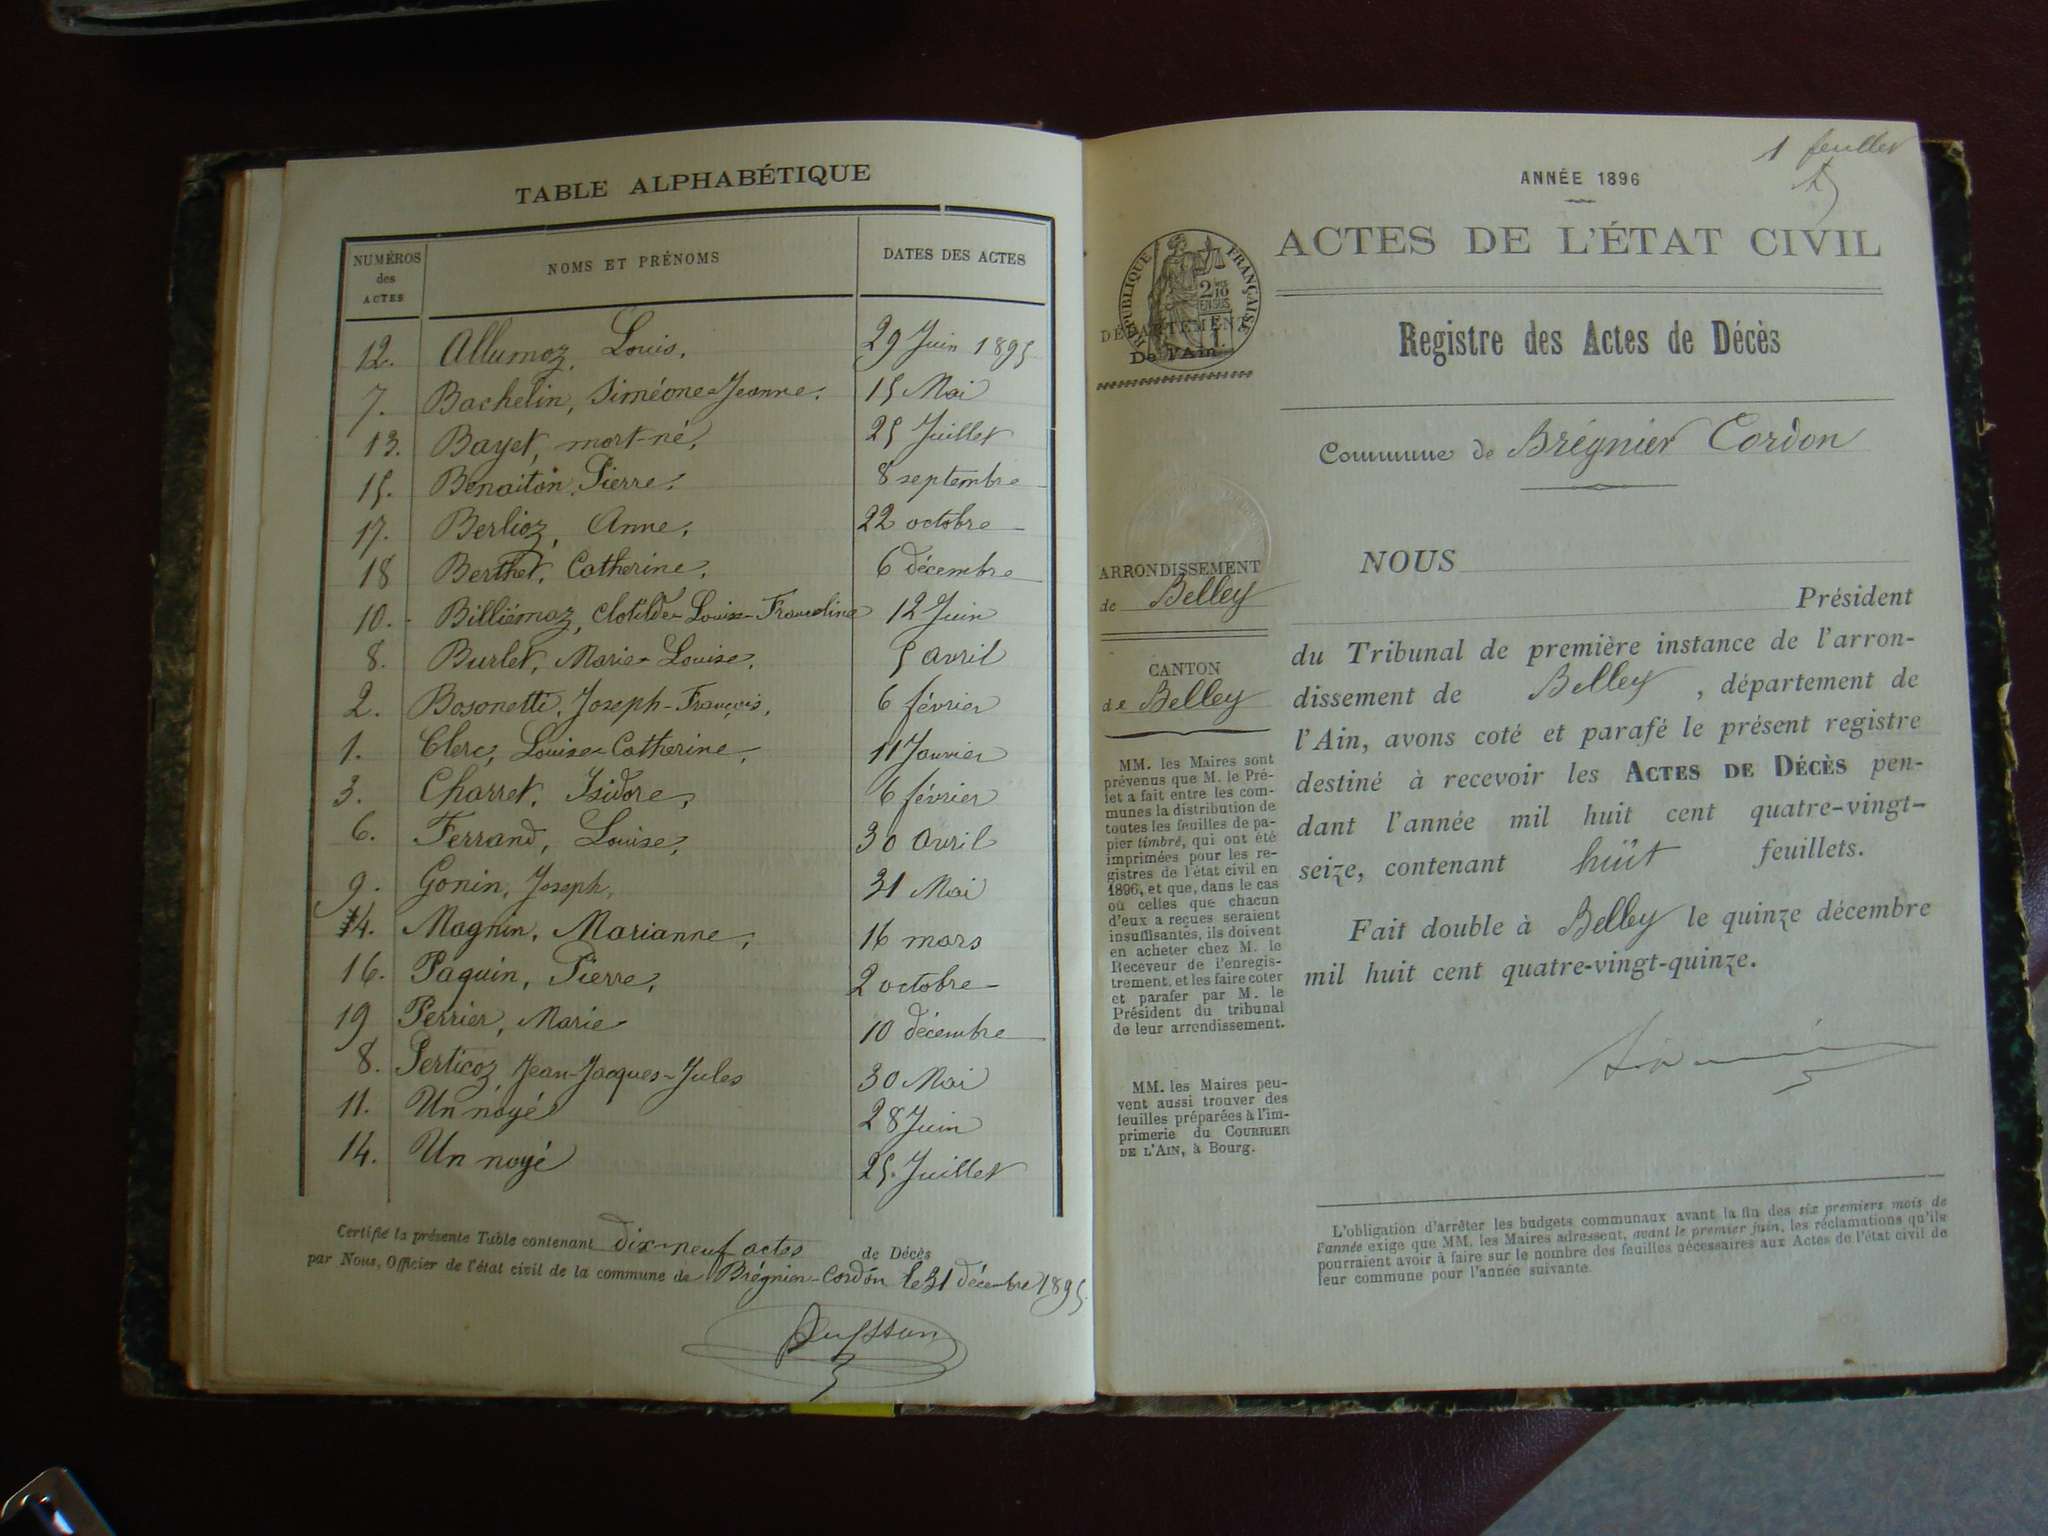 TABLE ALPHABÉTIQUE
NUMÉROS des ACTES NOMS ET PRÉNOMS DATES DES ACTES
12. Allumoz, Louis. 29 Juin 1895
7. Bachelin, Siméone-Jeanne. 15 Mai
13. Bayet, mort-né, 25 Juillet
15. Benaiton, Pierre, 8 septembre
17. Berlioz, Anne, 22 octobre
18 Berthet, Catherine, 6 décembre
10. Billiémaz, Clotilde-Louise-Franceline 12 Juin
8. Burlet, Marie-Louise, 5 avril
2. Bosonetti, Joseph-François, 6 février
1. Clerc, Louise-Catherine, 11 Janvier
3. Charret, Isidore, 6 février
6. Ferrand, Louise, 30 Avril
9. Gonin, Joseph, 31 Mai
4. Magnin, Marianne, 16 mars
16. Paquin, Pierre, 2 octobre
19 Perrier, Marie 10 décembre
8. Perticoz, Jean-Jacques-Jules 30 Mai
11. Un noyé 28 Juin
14. Un noyé 25 Juillet
Certifié la présente Table contenant dix-neuf actes de Décès
par Nous, Officier de l'état civil de la commune de Brégnier-Cordon le 31 décembre 1895.
1 feuillet
ANNÉE 1896
ACTES DE L'ÉTAT CIVIL
RÉPUBLIQUE FRANÇAISE
2/10 EN SUS
DÉPARTEMENT
De l'Ain
Registre des Actes de Décès
Commune de Brégnier Cordon
ARRONDISSEMENT
de Belley
CANTON
de Belley
MM. les Maires sont
prévenus que M. le Pré-
fet a fait entre les com-
munes la distribution de
toutes les feuilles de pa-
pier timbré, qui ont été
imprimées pour les re-
gistres de l'état civil en
1896, et que, dans le cas
où celles que chacun
d'eux a reçues seraient
insuffisantes, ils doivent
en acheter chez M. le
Receveur de l'enregis-
trement, et les faire coter
et parafer par M. le
Président du tribunal
de leur arrondissement.
MM. les Maires peu-
vent aussi trouver des
feuilles préparées à l'im-
primerie du COURRIER
DE L'AIN, à Bourg.
NOUS
Président
du Tribunal de première instance de l'arron-
dissement de Belley, département de
l'Ain, avons coté et parafé le présent registre
destiné à recevoir les ACTES DE DÉCÈS pen-
dant l'année mil huit cent quatre-vingt-
seize, contenant huit feuillets.
Fait double à Belley le quinze décembre
mil huit cent quatre-vingt-quinze.
L'obligation d'arrêter les budgets communaux avant la fin des six premiers mois de
l'année exige que MM. les Maires adressent, avant le premier juin, les réclamations qu'ils
pourraient avoir à faire sur le nombre des feuilles nécessaires aux Actes de l'état civil de
leur commune pour l'année suivante.